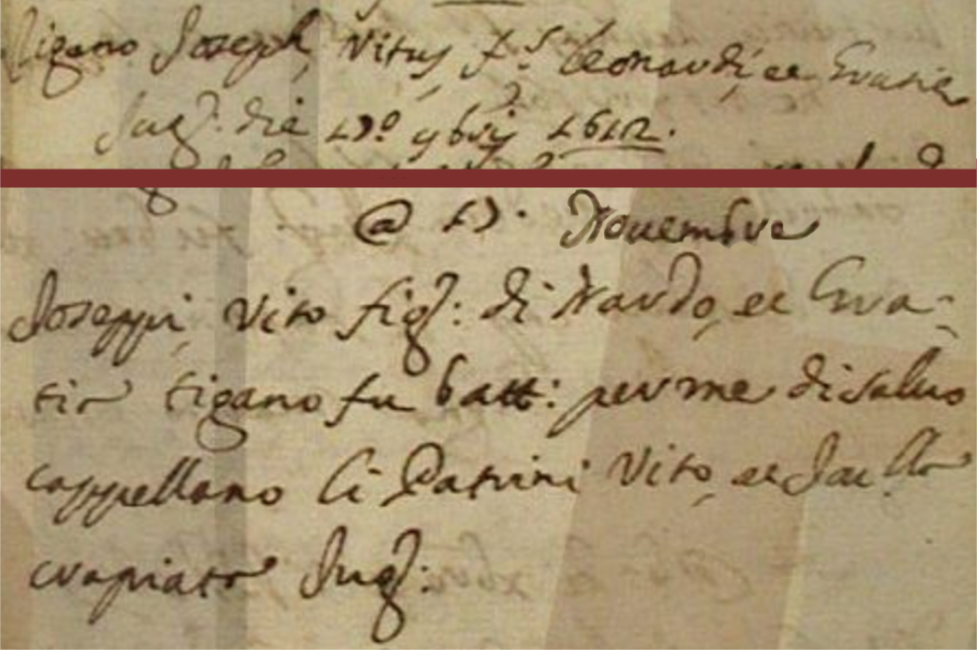 Tigano Joseph, Vitus f.s Leonardi, et Gratie
Jug: die 17º 9bris 1612.
@ 17. Nouembre
Joseppi, Vito figl: di Nardo, et Gra-
tia tigano fu batt: per me di saluo
cappellano li Patrini Vito, et
crapiato Jugl: